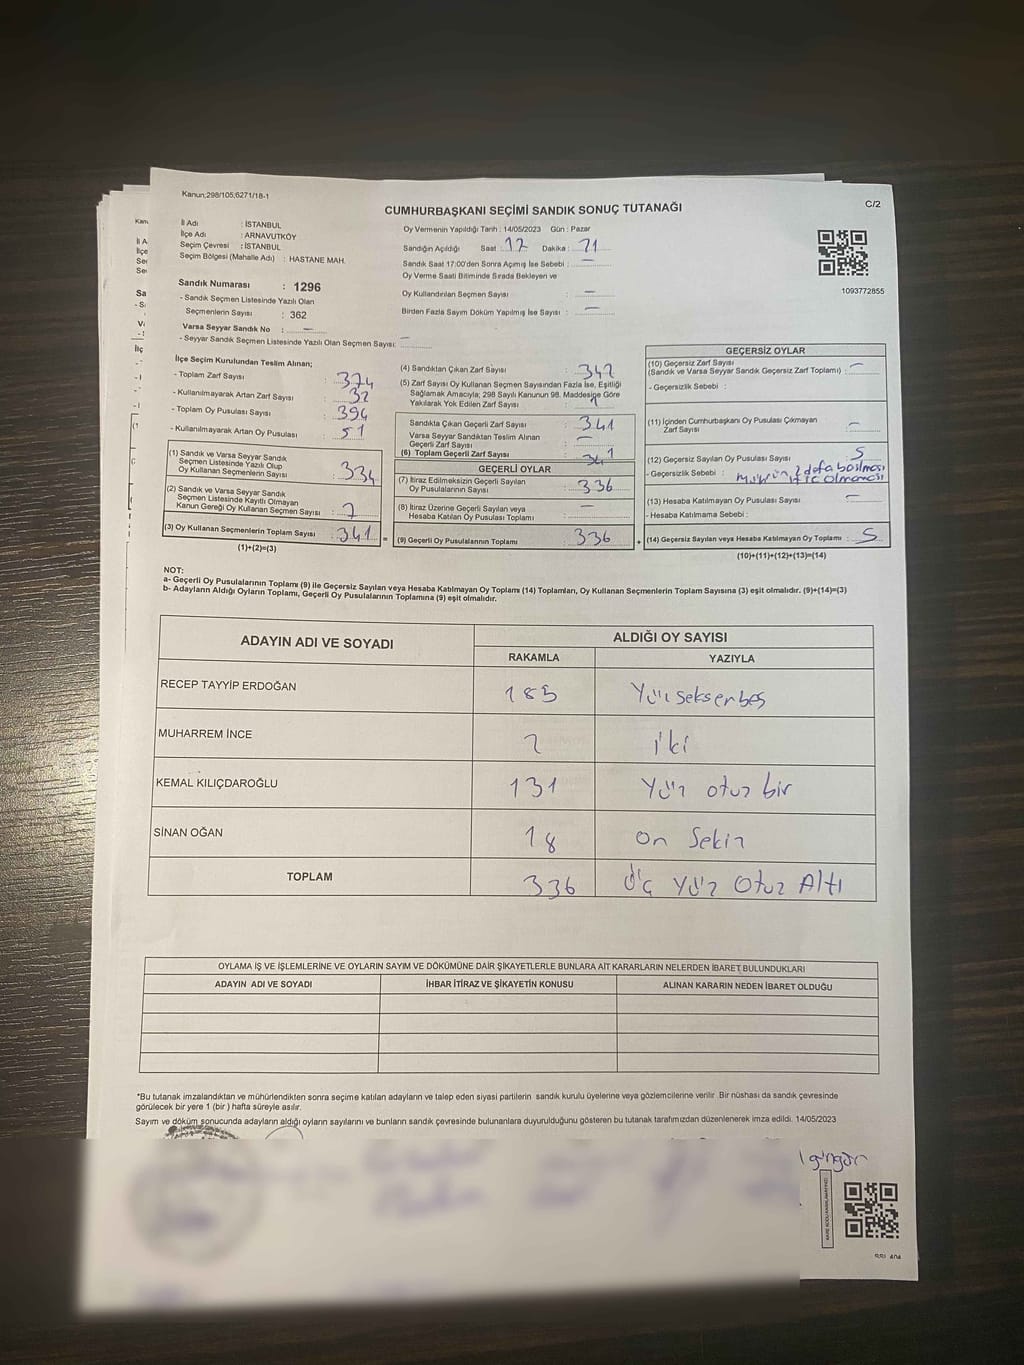 Kanun;298/105;6271/18-1
C/2
CUMHURBAŞKANI SEÇİMİ SANDIK SONUÇ TUTANAĞI
İl Adı : İSTANBUL
İlçe Adı : ARNAVUTKÖY
Seçim Çevresi : İSTANBUL
Seçim Bölgesi (Mahalle Adı) : HASTANE MAH.
Sandık Numarası : 1296
- Sandık Seçmen Listesinde Yazılı Olan
Seçmenlerin Sayısı : 362
Varsa Seyyar Sandık No : —
- Seyyar Sandık Seçmen Listesinde Yazılı Olan Seçmen Sayısı: —
Oy Vermenin Yapıldığı Tarih : 14/05/2023 Gün : Pazar
Sandığın Açıldığı Saat : 17 Dakika : 21
Sandık Saat 17:00'den Sonra Açımış İse Sebebi : —
Oy Verme Saati Bitiminde Sırada Bekleyen ve
Oy Kullandırılan Seçmen Sayısı : —
Birden Fazla Sayım Döküm Yapılmış İse Sayısı : —
1093772855
İlçe Seçim Kurulundan Teslim Alınan;
- Toplam Zarf Sayısı : 374
- Kullanılmayarak Artan Zarf Sayısı : 32
- Toplam Oy Pusulası Sayısı : 394
- Kullanılmayarak Artan Oy Pusulası : 51
(1) Sandık ve Varsa Seyyar Sandık
Seçmen Listesinde Yazılı Olup
Oy Kullanan Seçmenlerin Sayısı : 334
(2) Sandık ve Varsa Seyyar Sandık
Seçmen Listesinde Kayıtlı Olmayan
Kanun Gereği Oy Kullanan Seçmen Sayısı : 7
(3) Oy Kullanan Seçmenlerin Toplam Sayısı : 341
(1)+(2)=(3)
(4) Sandıktan Çıkan Zarf Sayısı : 342
(5) Zarf Sayısı Oy Kullanan Seçmen Sayısından Fazla İse, Eşitliği
Sağlamak Amacıyla; 298 Sayılı Kanunun 98. Maddesine Göre
Yakılarak Yok Edilen Zarf Sayısı : 1
Sandıkta Çıkan Geçerli Zarf Sayısı : 341
Varsa Seyyar Sandıktan Teslim Alınan
Geçerli Zarf Sayısı : —
(6) Toplam Geçerli Zarf Sayısı : 341
GEÇERLİ OYLAR
(7) İtiraz Edilmeksizin Geçerli Sayılan
Oy Pusulalarının Sayısı : 336
(8) İtiraz Üzerine Geçerli Sayılan veya
Hesaba Katılan Oy Pusulası Toplamı : —
= (9) Geçerli Oy Pusulalarının Toplamı : 336
GEÇERSİZ OYLAR
(10) Geçersiz Zarf Sayısı
(Sandık ve Varsa Seyyar Sandık Geçersiz Zarf Toplamı) : —
- Geçersizlik Sebebi :
(11) İçinden Cumhurbaşkanı Oy Pusulası Çıkmayan
Zarf Sayısı : —
(12) Geçersiz Sayılan Oy Pusulası Sayısı : 5
- Geçersizlik Sebebi : Mührün 2 defa basılması
olmaması
(13) Hesaba Katılmayan Oy Pusulası Sayısı : —
- Hesaba Katılmama Sebebi :
+ (14) Geçersiz Sayılan veya Hesaba Katılmayan Oy Toplamı : 5
(10)+(11)+(12)+(13)=(14)
NOT:
a- Geçerli Oy Pusulalarının Toplamı (9) ile Geçersiz Sayılan veya Hesaba Katılmayan Oy Toplamı (14) Toplamları, Oy Kullanan Seçmenlerin Toplam Sayısına (3) eşit olmalıdır. (9)+(14)=(3)
b- Adayların Aldığı Oyların Toplamı, Geçerli Oy Pusulalarının Toplamına (9) eşit olmalıdır.
ADAYIN ADI VE SOYADI
ALDIĞI OY SAYISI
RAKAMLA YAZIYLA
RECEP TAYYİP ERDOĞAN 185 Yüz seksen beş
MUHARREM İNCE 2 iki
KEMAL KILIÇDAROĞLU 131 Yüz otuz bir
SİNAN OĞAN 18 on sekiz
TOPLAM 336 Üç Yüz Otuz Altı
OYLAMA İŞ VE İŞLEMLERİNE VE OYLARIN SAYIM VE DÖKÜMÜNE DAİR ŞİKAYETLERLE BUNLARA AİT KARARLARIN NELERDEN İBARET BULUNDUKLARI
ADAYIN ADI VE SOYADI İHBAR İTİRAZ VE ŞİKAYETİN KONUSU ALINAN KARARIN NEDEN İBARET OLDUĞU
*Bu tutanak imzalandıktan ve mühürlendikten sonra seçime katılan adayların ve talep eden siyasi partilerin sandık kurulu üyelerine veya gözlemcilerine verilir. Bir nüshası da sandık çevresinde
görülecek bir yere 1 (bir ) hafta süreyle asılır.
Sayım ve döküm sonucunda adayların aldığı oyların sayılarını ve bunların sandık çevresinde bulunanlara duyurulduğunu gösteren bu tutanak tarafımızdan düzenlenerek imza edildi. 14/05/2023
güngör